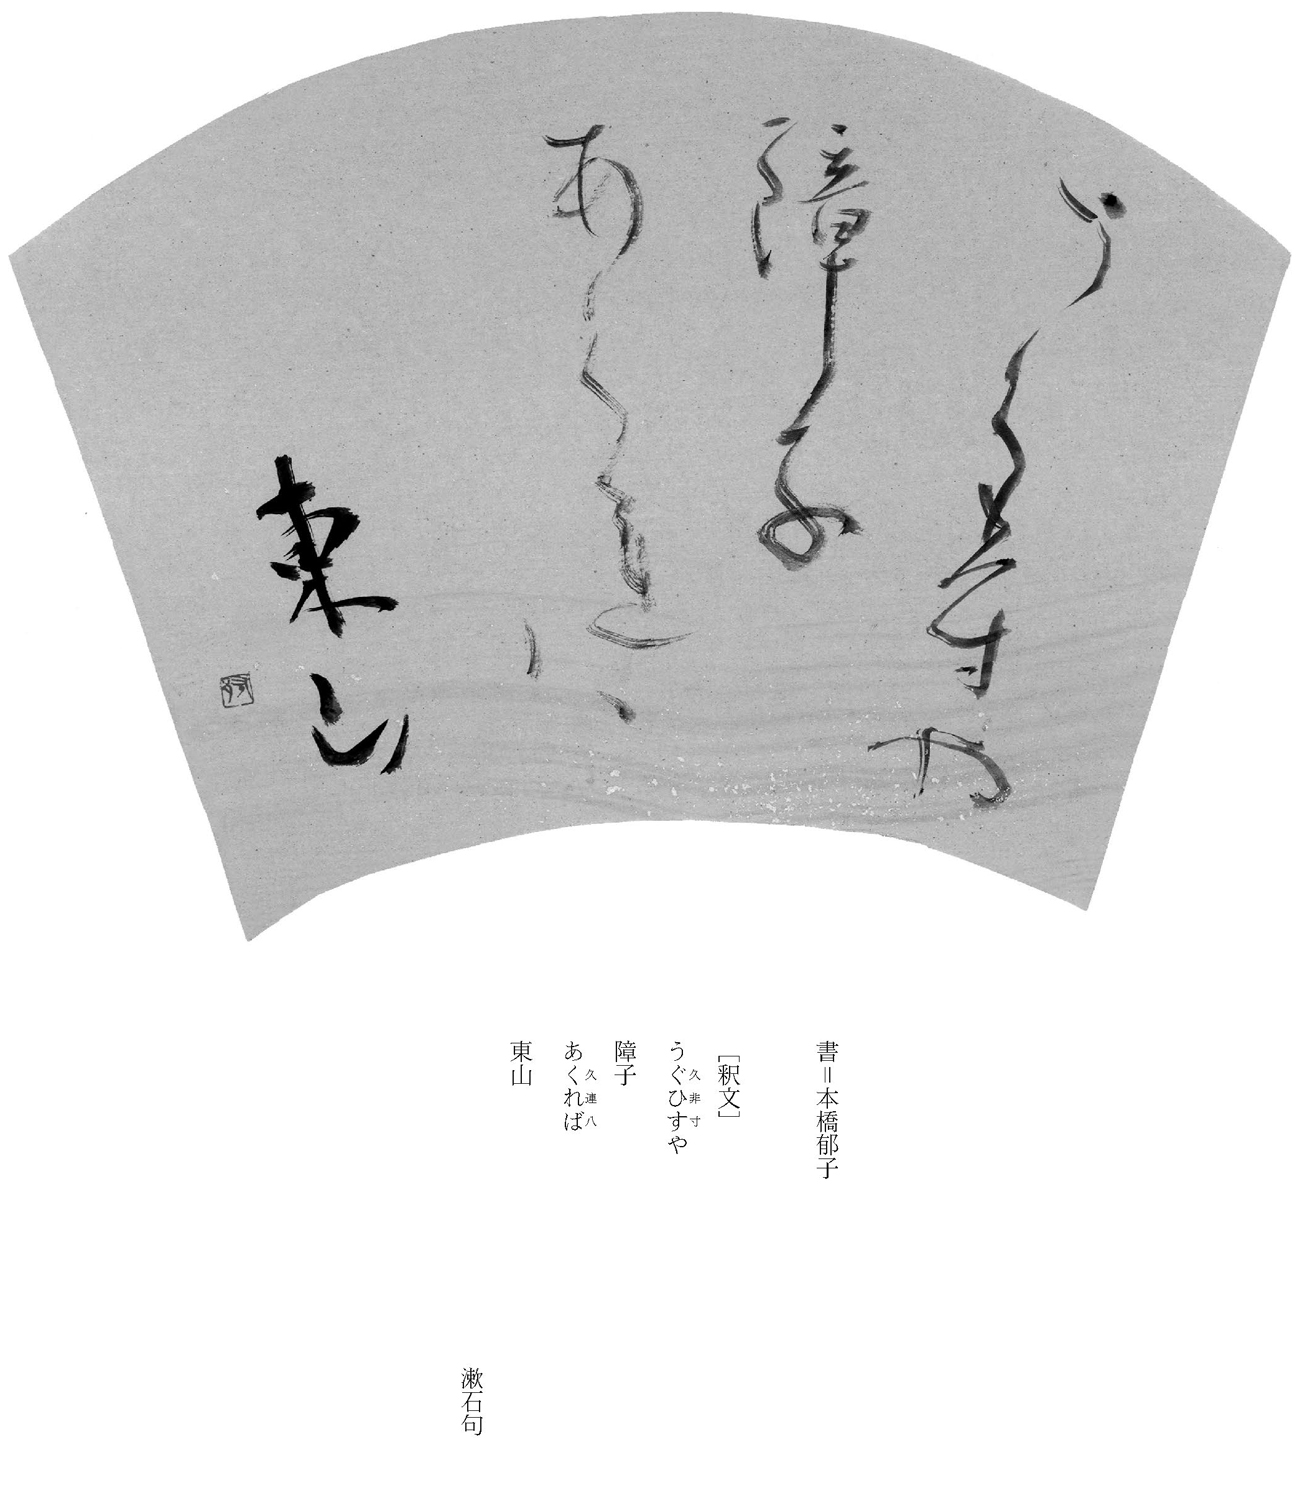 うく非寸や
障子
あく連八
東山
書=本橋郁子
[釈文]
うぐひすや
久非寸
障子
あくれば
久連八
東山
漱石句